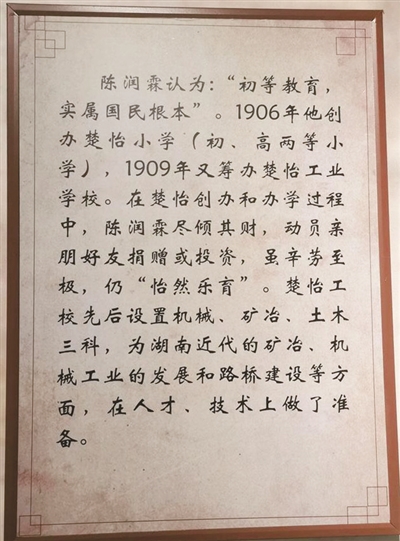 陈润霖认为：“初等教育，
实属国民根本”。1906年他创
办楚怡小学（初、高两等小
学），1909年又筹办楚怡工业
学校。在楚怡创办和办学过程
中，陈润霖尽倾其财，动员亲
朋好友捐赠或投资，虽辛劳至
极，仍“怡然乐育”。楚怡工
校先后设置机械、矿冶、土木
三科，为湖南近代的矿冶、机
械工业的发展和路桥建设等方
面，在人才、技术上做了准
备。